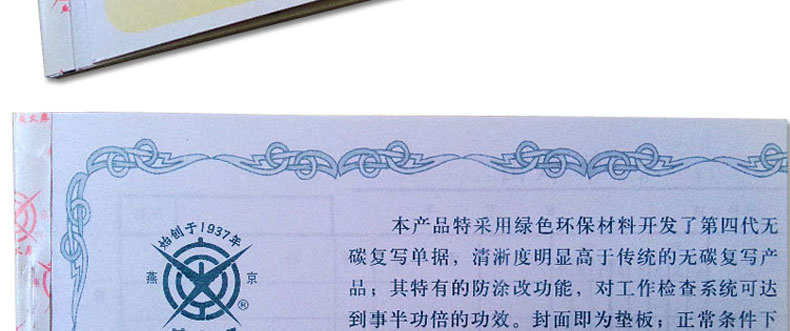 始创于1937年
燕 京
®
本产品特采用绿色环保材料开发了第四代无
碳复写单据，清淅度明显高于传统的无碳复写产
品；其特有的防涂改功能，对工作检查系统可达
到事半功倍的功效。封面即为垫板；正常条件下